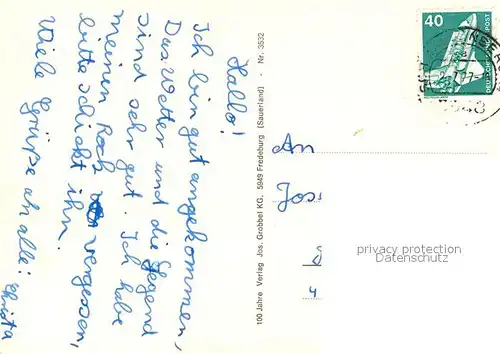 Hallo!
Ich bin gut angekommen,
Das Wetter und die Gegend
sind sehr gut. Ich habe
meinen Rock vergessen,
bitte schickt ihn.
Viele Grüße an alle!
Christa
100 Jahre Verlag Jos. Grobbel KG, 5949 Fredeburg (Sauerland) - Nr. 3532
40
DEUTSCHE BUNDESPOST
An
Jos
privacy protection
Datenschutz
4